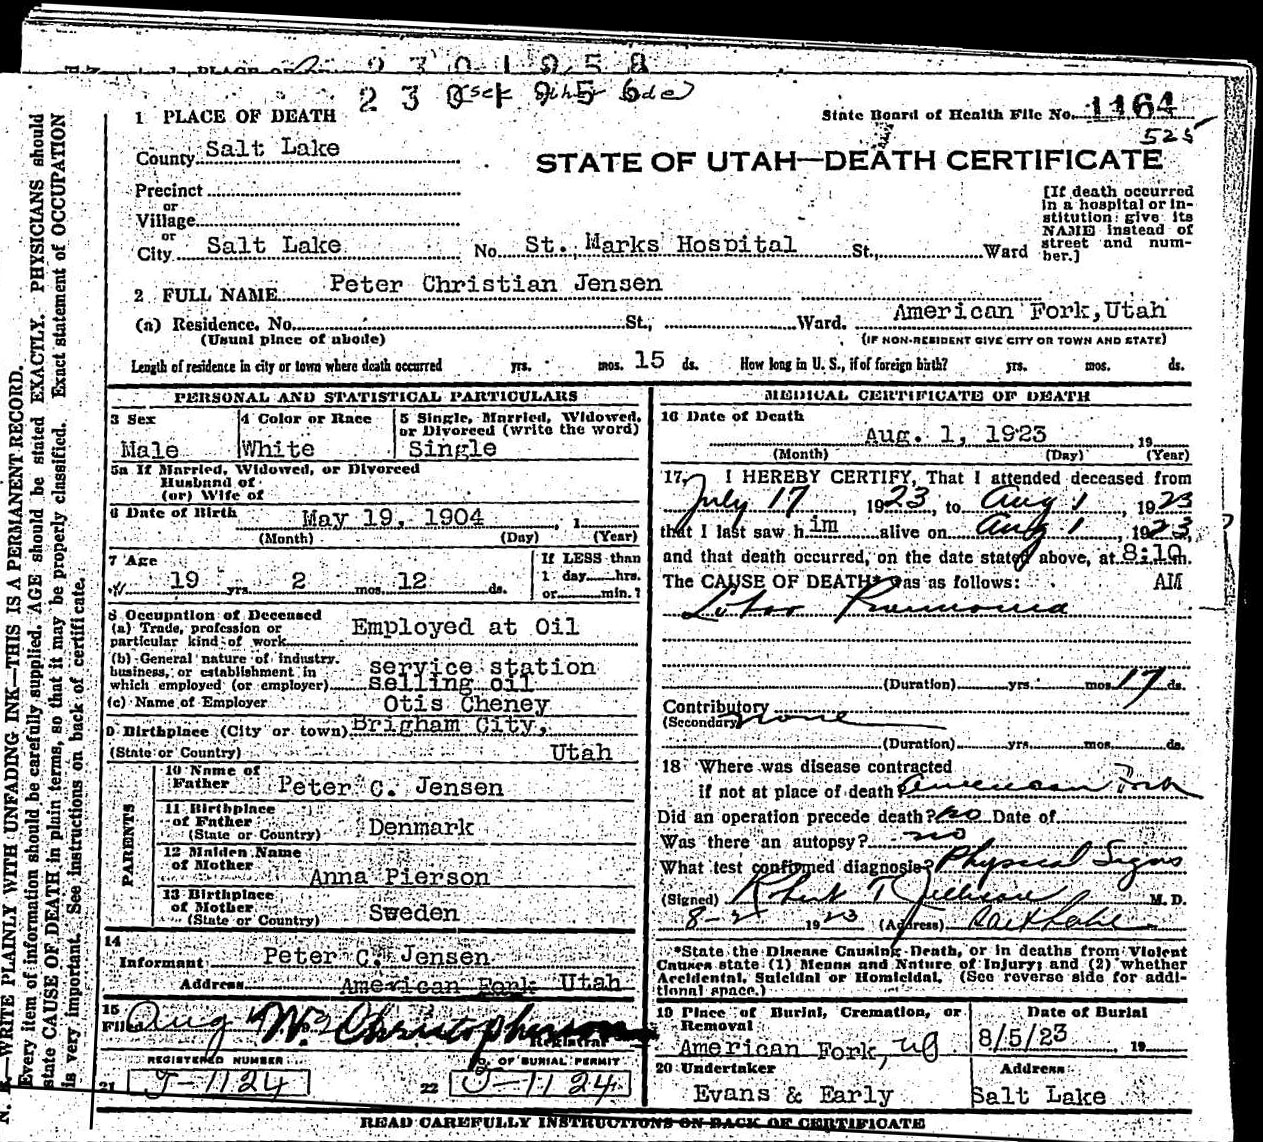 2301958
2301956
(see other side)
1 PLACE OF DEATH
State Board of Health File No. 1164
525
County Salt Lake
STATE OF UTAH—DEATH CERTIFICATE
Precinct
or
Village
or
City Salt Lake No. St. Marks Hospital St., Ward
[If death occurred
in a hospital or in-
stitution give its
NAME instead of
street and num-
ber.]
2 FULL NAME Peter Christian Jensen
(a) Residence. No. St., Ward. American Fork, Utah
(Usual place of abode) (IF NON-RESIDENT GIVE CITY OR TOWN AND STATE)
Length of residence in city or town where death occurred yrs. mos. 15 ds. How long in U. S., if of foreign birth? yrs. mos. ds.
PERSONAL AND STATISTICAL PARTICULARS
3 Sex
Male
4 Color or Race
White
5 Single, Married, Widowed,
or Divorced (write the word)
Single
5a If Married, Widowed, or Divorced
Husband of
(or) Wife of
6 Date of Birth May 19, 1904, 1
(Month) (Day) (Year)
7 Age
19 yrs. 2 mos. 12 ds.
If LESS than
1 day hrs.
or min.?
8 Occupation of Deceased
(a) Trade, profession or
particular kind of work Employed at Oil
(b) General nature of industry,
business, or establishment in
which employed (or employer) service station
selling oil
(c) Name of Employer Otis Cheney
9 Birthplace (City or town) Brigham City,
(State or Country) Utah
PARENTS
10 Name of
Father Peter C. Jensen
11 Birthplace
of Father
(State or Country) Denmark
12 Maiden Name
of Mother
Anna Pierson
13 Birthplace
of Mother
(State or Country) Sweden
14
Informant Peter C. Jensen
Address American Fork Utah
15
Filed Aug 4 W. Christopherson
Registrar
REGISTERED NUMBER
21 J-1124
NO. OF BURIAL PERMIT
22 J-1124
MEDICAL CERTIFICATE OF DEATH
16 Date of Death
Aug. 1, 1923, 19
(Month) (Day) (Year)
17. I HEREBY CERTIFY, That I attended deceased from
July 17, 1923, to Aug 1, 1923
that I last saw him alive on Aug 1, 1923,
and that death occurred, on the date stated above, at 8:10 m.
The CAUSE OF DEATH* was as follows: AM
Lobar Pneumonia
(Duration) yrs. mos. 17 ds.
Contributory
(Secondary) none
(Duration) yrs. mos. ds.
18 Where was disease contracted
if not at place of death American Fork
Did an operation precede death? no Date of
Was there an autopsy? no
What test confirmed diagnosis? Physical Signs
(Signed) Robert T Jellison M. D.
8-2 1923 (Address) Salt Lake
*State the Disease Causing Death, or in deaths from Violent
Causes state (1) Means and Nature of Injury; and (2) whether
Accidental, Suicidal or Homicidal. (See reverse side for addi-
tional space.)
19 Place of Burial, Cremation, or
Removal
American Fork, U
Date of Burial
8/5/23 19
20 Undertaker
Evans & Early
Address
Salt Lake
READ CAREFULLY INSTRUCTIONS ON BACK OF CERTIFICATE
N. B.—WRITE PLAINLY WITH UNFADING INK—THIS IS A PERMANENT RECORD.
Every item of information should be carefully supplied. AGE should be stated EXACTLY. PHYSICIANS should
state CAUSE OF DEATH in plain terms, so that it may be properly classified. Exact statement of OCCUPATION
is very important. See instructions on back of certificate.